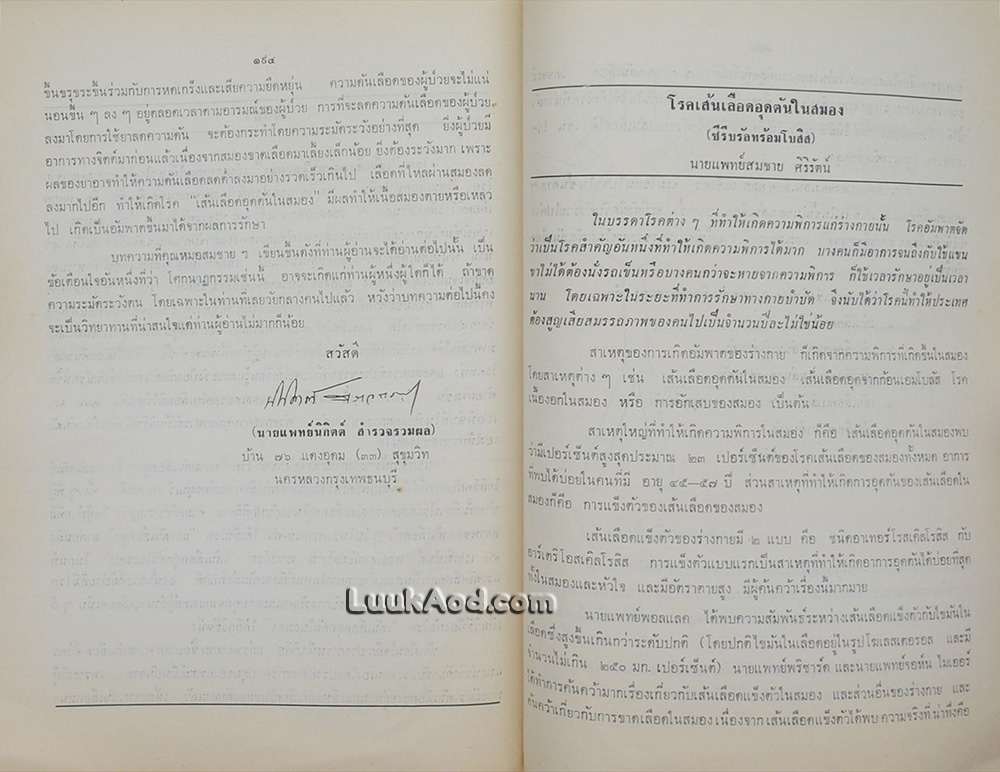 ๑๙๔
ขึ้นขรุขระขึ้นร่วมกับการหดเกร็งและเสียความยืดหยุ่น ความดันเลือดของผู้ป่วยจะไม่แน่
นอนขึ้น ๆ ลง ๆ อยู่ตลอดเวลาตามอารมณ์ของผู้ป่วย การที่จะลดความดันเลือดของผู้ป่วย
ลงมาโดยการใช้ยาลดความดัน จะต้องกระทำโดยความระมัดระวังอย่างที่สุด ยิ่งผู้ป่วยมี
อาการทางจิตต์มาก่อนแล้วเนื่องจากสมองขาดเลือดมาเลี้ยงเล็กน้อย ยิ่งต้องระวังมาก เพราะ
ผลของยาอาจทำให้ความดันเลือดลดต่ำลงมาอย่างรวดเร็วเกินไป เลือดที่ไหลผ่านสมองลด
ลงมากไปอีก ทำให้เกิดโรค “เส้นเลือดอุดตันในสมอง” มีผลทำให้เนื้อสมองตายหรือเหลว
ไป เกิดเป็นอัมพาตขึ้นมาได้จากผลการรักษา
บทความที่คุณหมอสมชาย ฯ เขียนขึ้นดังที่ท่านผู้อ่านจะได้อ่านต่อไปนั้น เป็น
ข้อเตือนใจอันหนึ่งที่ว่า โศกนาฏกรรมเช่นนี้ อาจจะเกิดแก่ท่านผู้หนึ่งผู้ใดก็ได้ ถ้าขาด
ความระมัดระวังตน โดยเฉพาะในท่านที่เลยวัยกลางคนไปแล้ว หวังว่าบทความต่อไปนี้คง
จะเป็นวิทยาทานที่น่าสนใจแด่ท่านผู้อ่านไม่มากก็น้อย
สวัสดี
(นายแพทย์นิกิตต์ สำรวจรวมผล)
บ้าน ๗๖ แดงอุดม (๓๓) สุขุมวิท
นครหลวงกรุงเทพธนบุรี
โรคเส้นเลือดอุดตันในสมอง
(ซีรีบรัลทรัอมโบสีส)
นายแพทย์สมชาย ศิริรัตน์
ในบรรดาโรคต่าง ๆ ที่ทำให้เกิดความพิการแก่ร่างกายนั้น โรคอัมพาตจัด
ว่าเป็นโรคสำคัญอันหนึ่งที่ทำให้เกิดความพิการได้มาก บางคนก็มีอาการจนถึงกับใช้แขน
ขาไม่ได้ต้องนั่งรถเข็นหรือบางคนกว่าจะหายจากความพิการ ก็ใช้เวลารักษาอยู่เป็นเวลา
นาน โดยเฉพาะในระยะที่ทำการรักษาทางกายบำบัด จึงนับได้ว่าโรคนี้ทำให้ประเทศ
ต้องสูญเสียสมรรถภาพของคนไปเป็นจำนวนปีละไม่ใช่น้อย
สาเหตุของการเกิดอัมพาตของร่างกาย ก็เกิดจากความพิการที่เกิดขึ้นในสมอง
โดยสาเหตุต่าง ๆ เช่น เส้นเลือดอุดตันในสมอง เส้นเลือดอุดจากก้อนเอมโบลัส โรค
เนื้องอกในสมอง หรือ การอักเสบของสมอง เป็นต้น
สาเหตุใหญ่ที่ทำให้เกิดความพิการในสมอง ก็คือ เส้นเลือดอุดตันในสมองพบ
ว่ามีเปอร์เซ็นต์สูงสุดประมาณ ๒๓ เปอร์เซ็นต์ของโรคเส้นเลือดของสมองทั้งหมด อาการ
ที่พบได้บ่อยในคนที่มี อายุ ๔๕—๕๗ ปี ส่วนสาเหตุที่ทำให้เกิดการอุดตันของเส้นเลือดใน
สมองก็คือ การแข็งตัวของเส้นเลือดของสมอง
เส้นเลือดแข็งตัวของร่างกายมี ๒ แบบ คือ ชนิดอาเทอร์โรสเคิลโรสิส กับ
อาร์เตริโอสเคิลโรสิส การแข็งตัวแบบแรกเป็นสาเหตุที่ทำให้เกิดอาการอุดตันได้บ่อยที่สุด
ทั้งในสมองและหัวใจ และมีอัตราตายสูง มีผู้ค้นคว้าเรื่องนี้มากมาย
นายแพทย์พอลแลค ได้พบความสัมพันธ์ระหว่างเส้นเลือดแข็งตัวกับไขมันใน
เลือดซึ่งสูงขึ้นเกินกว่าระดับปกติ (โดยปกติไขมันในเลือดอยู่ในรูปโฆเลสเตอรอล และมี
จำนวนไม่เกิน ๒๕๐ มก. เปอร์เซ็นต์) นายแพทย์พริชาร์ด และนายแพทย์จอห์น ไมเออร์
ได้ทำการค้นคว้ามากเรื่องเกี่ยวกับเส้นเลือดแข็งตัวในสมอง และส่วนอื่นของร่างกาย และ
ค้นคว้าเกี่ยวกับการขาดเลือดในสมองเนื่องจากเส้นเลือดแข็งตัวได้พบ ความจริงที่น่าทึ่งคือ
LuukAod.com